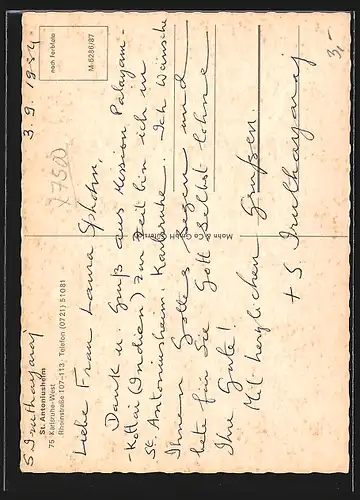 S. Irudhayaraj
3.9.1984
St. Antoniusheim
75 Karlsruhe-West
Rheinstraße 107-113, Telefon (0721) 51081
nach Farbfoto
M-6286/87
X7500
Liebe Frau Lama
Dank u. Gruß aus Mission Palayam-
-Kottai (Indien) zur Zeit bin ich in
St. Antoniusheim, Karlsruhe. Ich wünsche
Ihnen Gottes Segen und
bete für Sie Gott selbst lohne
Ihre Güte!
Mit herzlichen Grüßen.
+ S. Irudhayaraj
Mohn & Co GmbH Gütersloh
3,-